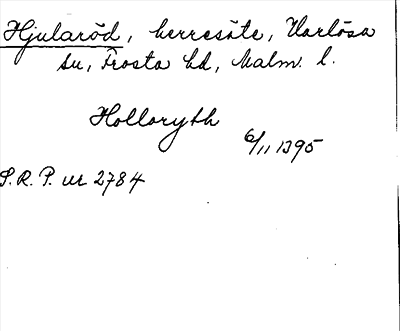 Hjularöd, herresäte, Harlösa
sn, Frosta hd, Malm. l.
Holloryth
6/11 1395
S.R.P. nr 2784